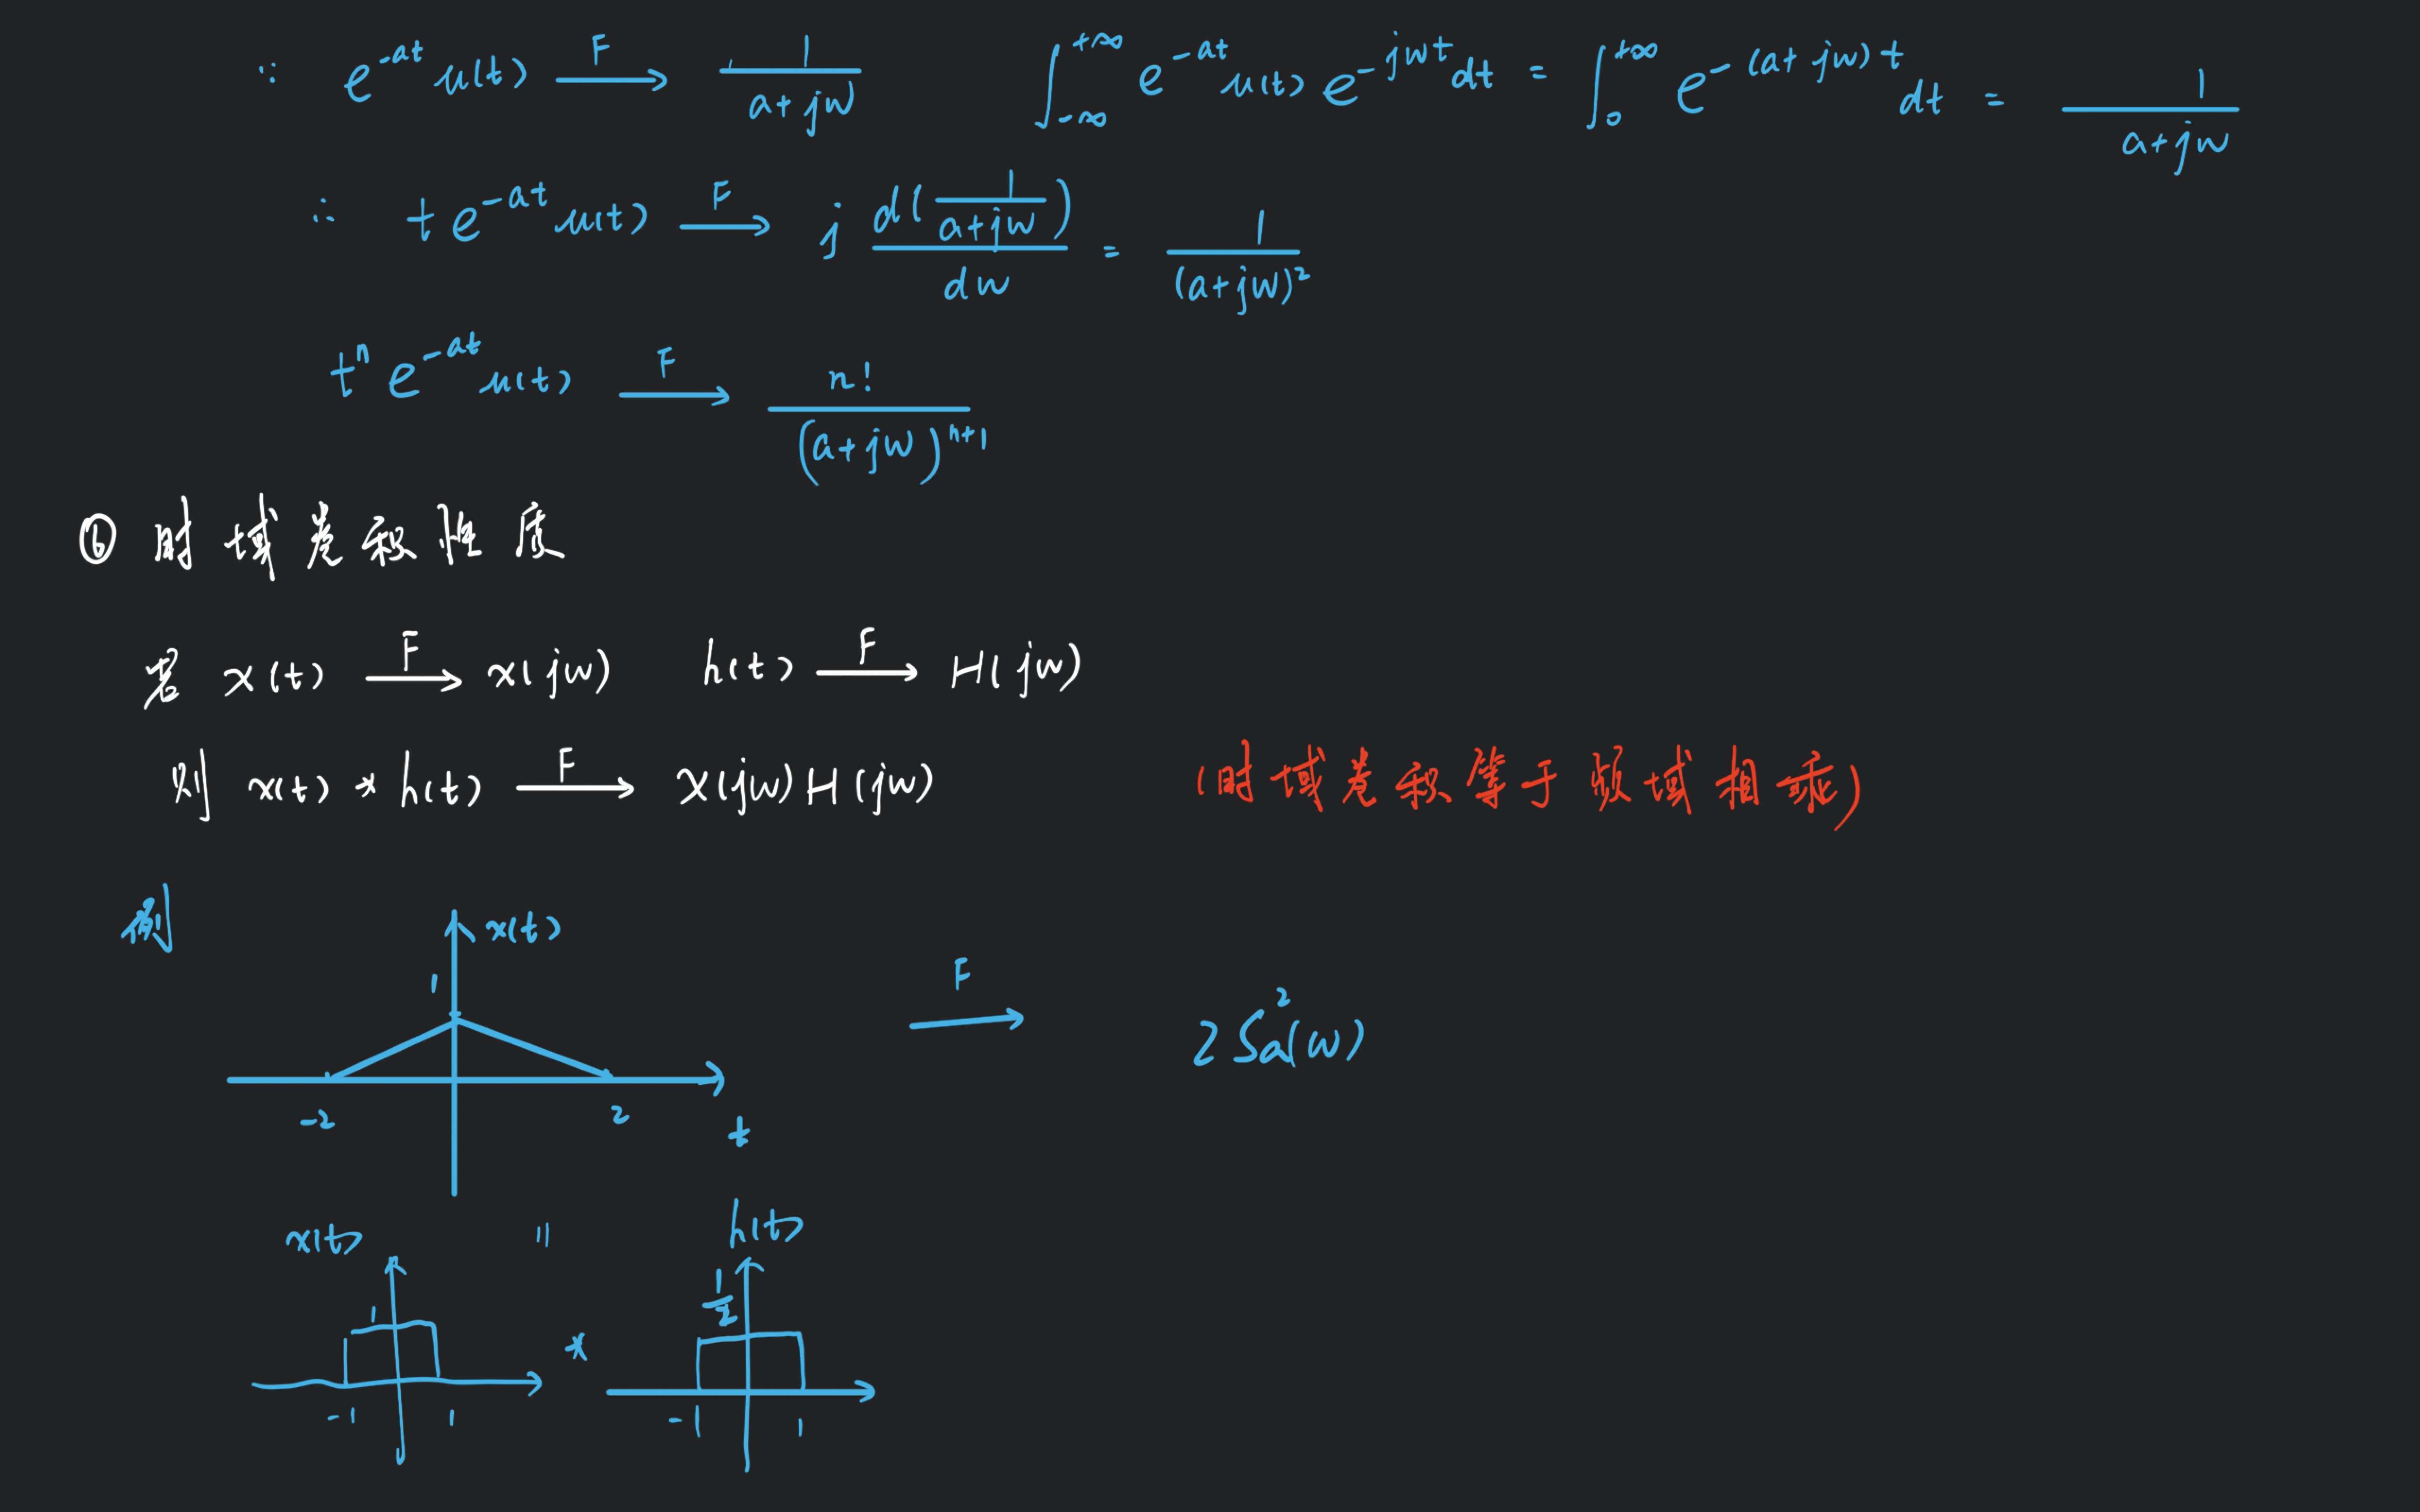 ∵ e^{-at} u(t) \xrightarrow{F} \frac{1}{a+jw} \int_{-∞}^{+∞} e^{-at} u(t) e^{-jwt} dt = \int_{0}^{+∞} e^{-(a+jw)t} dt = \frac{1}{a+jw}
∴ t e^{-at} u(t) \xrightarrow{F} j \frac{d(\frac{1}{a+jw})}{dw} = \frac{1}{(a+jw)^2}
t^n e^{-at} u(t) \xrightarrow{F} \frac{n!}{(a+jw)^{n+1}}
⑥ 时域卷积性质
若 x(t) \xrightarrow{F} x(jw) h(t) \xrightarrow{F} H(jw)
则 x(t) * h(t) \xrightarrow{F} X(jw)H(jw) (时域卷积等于频域相乘)
例 x(t)
1
\xrightarrow{F} 2Sa^2(w)
-2 2 t
x(t) = h(t)
1 * \frac{1}{2}
-1 1 -1 1